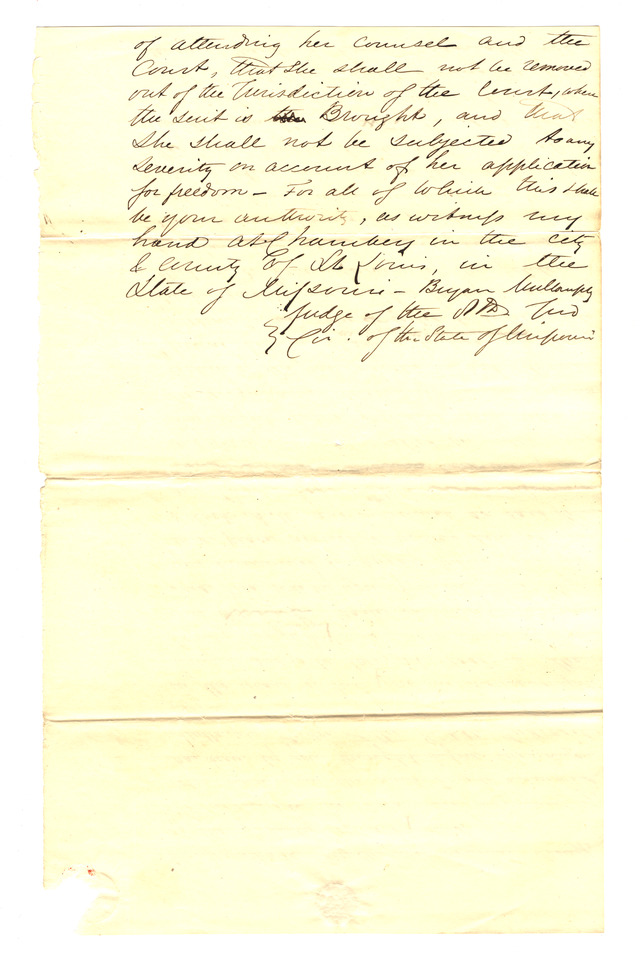 of attending her counsel and the
Court, that she shall not be removed
out of the Jurisdiction of the Court, where
the suit is Brought, and that
she shall not be subjected to any
severity on account of her application
for freedom – For all of which this shall
be your authority, as witness my
hand at Chambers in the city
& county of St Louis, in the
State of Missouri – Bryan Mullanphy
Judge of the 8th Jud
Cir. of the State of Missouri